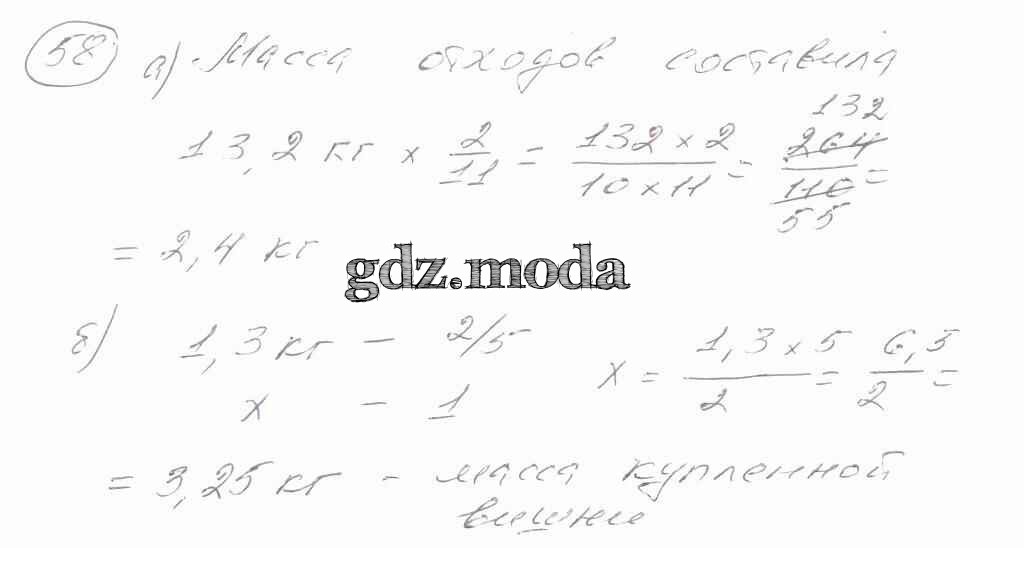 58 а) Масса отходов составила
132
13,2 кг × 2/11 = 132 × 2 / 10 × 11 = 264 / 110 =
55
= 2,4 кг
gdz.moda
б) 1,3 кг - 2/5
x - 1
x = 1,3 × 5 / 2 = 6,5 / 2 =
= 3,25 кг - масса купленной
вишни